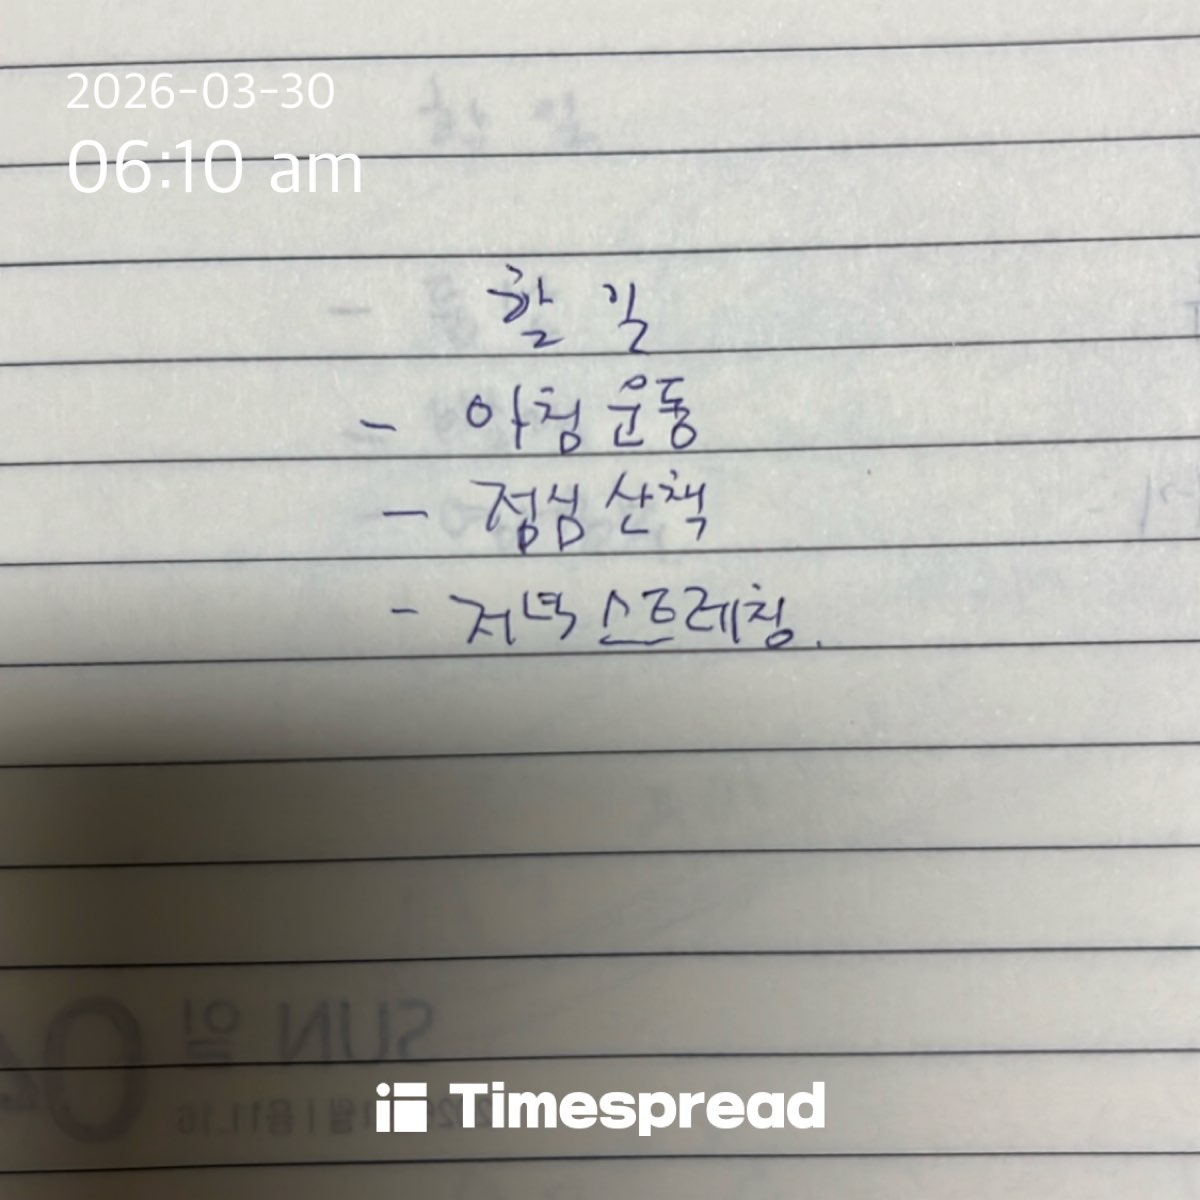 2026-03-30
06:10 am
할 일
- 아침 운동
- 점심 산책
- 저녁 스트레칭.
SUN 일
04
Timespread